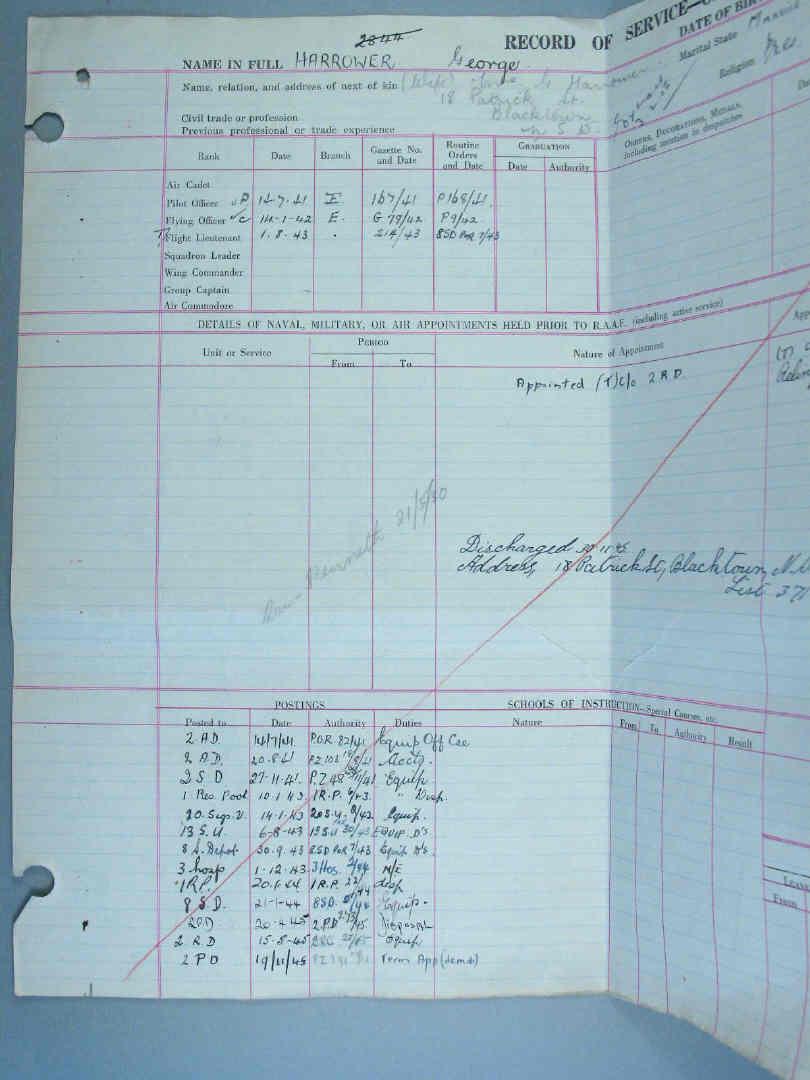 2844
RECORD OF SERVICE
DATE OF BIR
NAME IN FULL HARROWER George
Marital State
Religion Pres
Name, relation, and address of next of kin (Wife) Harrower
18 Patrick St.
Civil trade or profession Blacktown
Previous professional or trade experience N S W.
Orders, Decorations, Medals, including mention in despatches
Rank Date Branch Gazette No. and Date Routine Orders and Date Graduation
Date Authority
Air Cadet
Pilot Officer P 14.7.41 E 167/41 P168/41.
Flying Officer C 14-1-42 E. G 79/42 P9/42
T/Flight Lieutenant 1.8.43 . 214/43 8SD POR 7/43
Squadron Leader
Wing Commander
Group Captain
Air Commodore
DETAILS OF NAVAL, MILITARY, OR AIR APPOINTMENTS HELD PRIOR TO R.A.A.F. (including active service)
Unit or Service Period Nature of Appointment
From To
Appointed (T) c/o 2 R D.
Kenneth 21/5/40
Discharged
Address, 18 Patrick St, Blacktown,
List 371
POSTINGS SCHOOLS OF INSTRUCTION—Special Courses, etc.
Posted to Date Authority Duties Nature From To Authority Result
2 A.D. 14/7/41 P.O.R. 82/41 Equip Off Cse
2 A.D. 20.8.41 Accts.
2 S D. 27-11-41. Equip
1 Res. Pool 10.1.43 1R.P. " Disp.
20. Sup. U. 14.1.43 Equip.
13 S.U. 6-8-43 13SU 30/43 EQUIP. D's.
8 S. Depot 30.9.43 8SD POR 7/43 Equip D's.
3 hosp 1.12.43 3 Hos. N/E
1 R.P. 1 R.P. 22/44 disp
8 S.D. 21-1-44 8SD. Equip.
2PD 20.4.45 2.PD Disposal
2 R D 15-8-45 Equip
2 P D 19/11/45 Term App (demob)
Leave
From